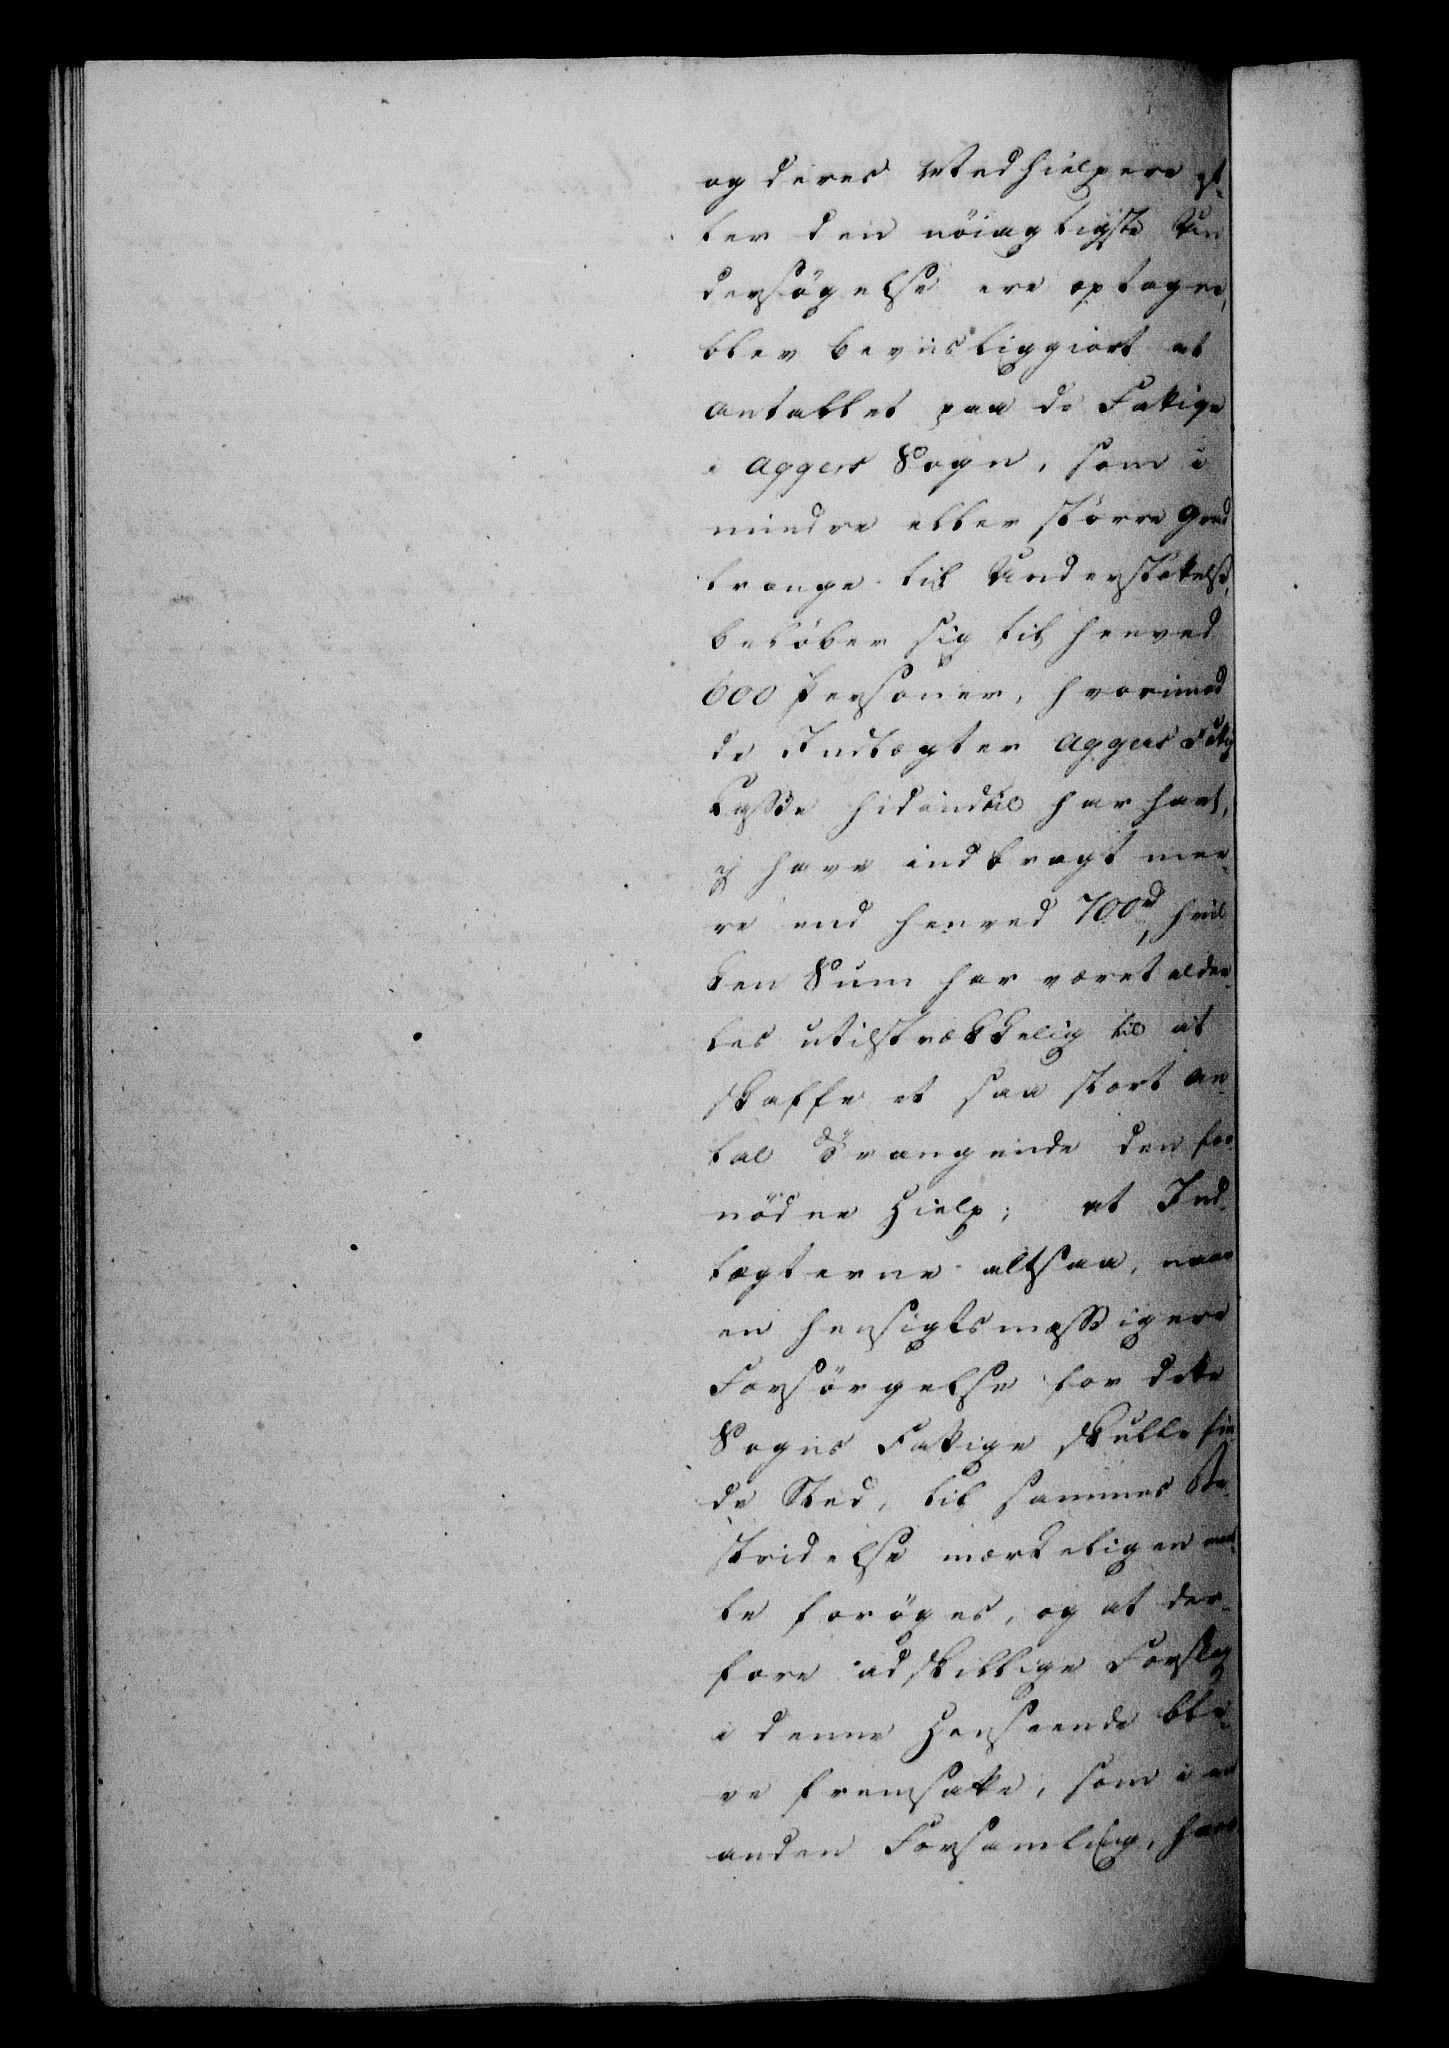 og deres Medhielpere ef-
ter den nöiagtigste Un
dersögelse ere optagne,
blev beviisliggiort at
Antallet paa de Fattige
i Aggers Sogn, som i
mindre eller större Grad
trænge til Understøttelse,
belöber sig til henved
600 Personer, hvorimod
de Indtægter Aggers Fattig
Casse hidindtil har havt,
ej have indbragt mee-
re end henved 700rd, hvil
ken Sum har været alde-
les utilstrækkelig til at
skaffe et saa stort An-
tal Trængende den for
nödne Hielp; at Ind-
tægterne altsaa, naar
en hensigtsmæssigere
Forsörgelse for dette
Sogns Fattige skulle fin
de Sted, til sammes Be-
stridelse mærkeligen maat-
te foröges, og at der-
fore adskillige Forslag
i denne Henseende ble-
ve fremsatte, som i en
anden Forsamling,